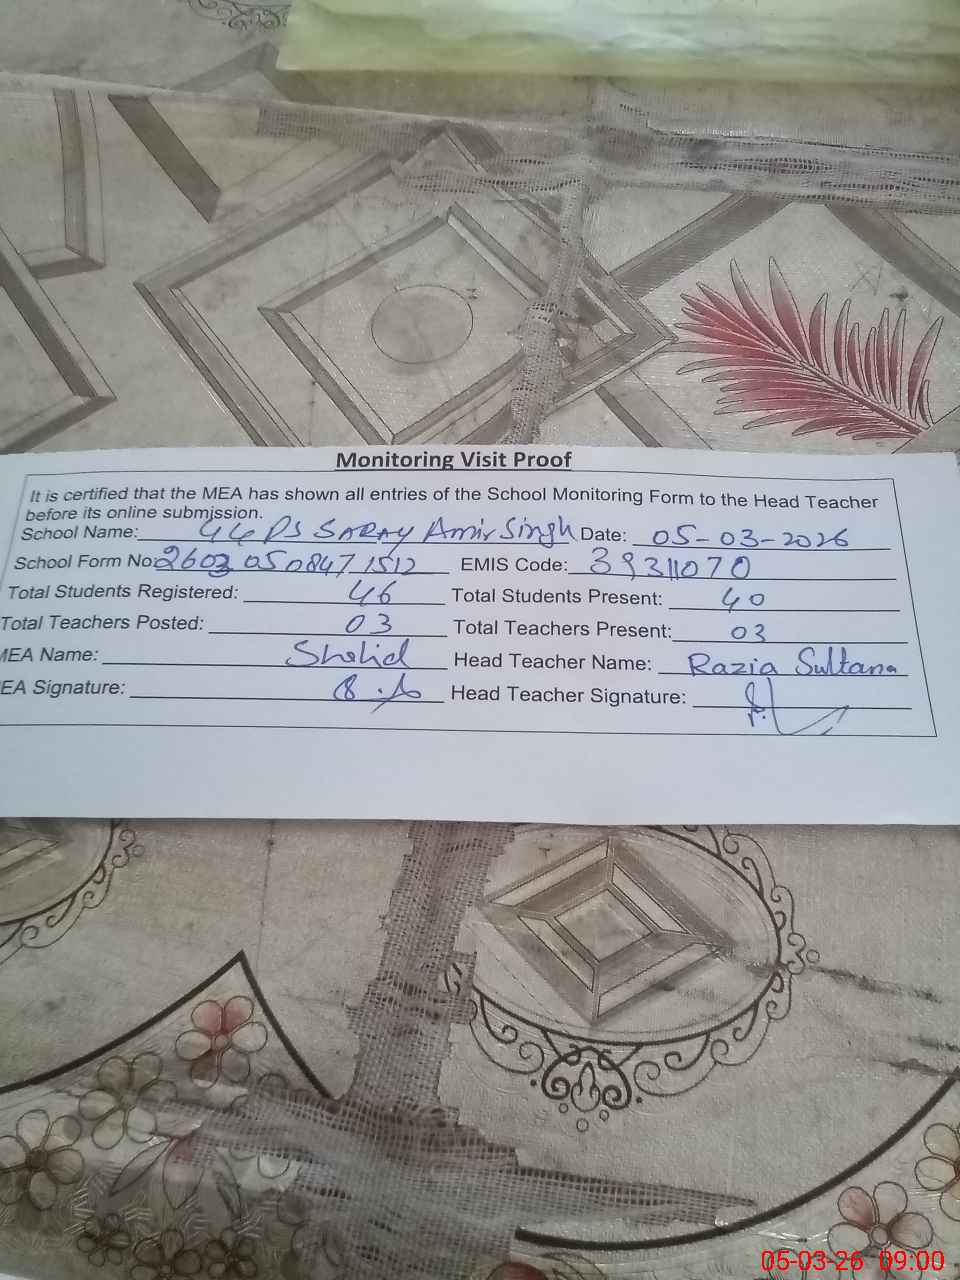 Monitoring Visit Proof
It is certified that the MEA has shown all entries of the School Monitoring Form to the Head Teacher
before its online submission.
School Name: PS SARAY Amir Singh Date: 05-03-2026
School Form No: 2603 050847 1512 EMIS Code: 39311070
Total Students Registered: 46 Total Students Present: 40
Total Teachers Posted: 03 Total Teachers Present: 03
MEA Name: Shahid Head Teacher Name: Razia Sultana
EA Signature: Head Teacher Signature:
05-03-26 09:00